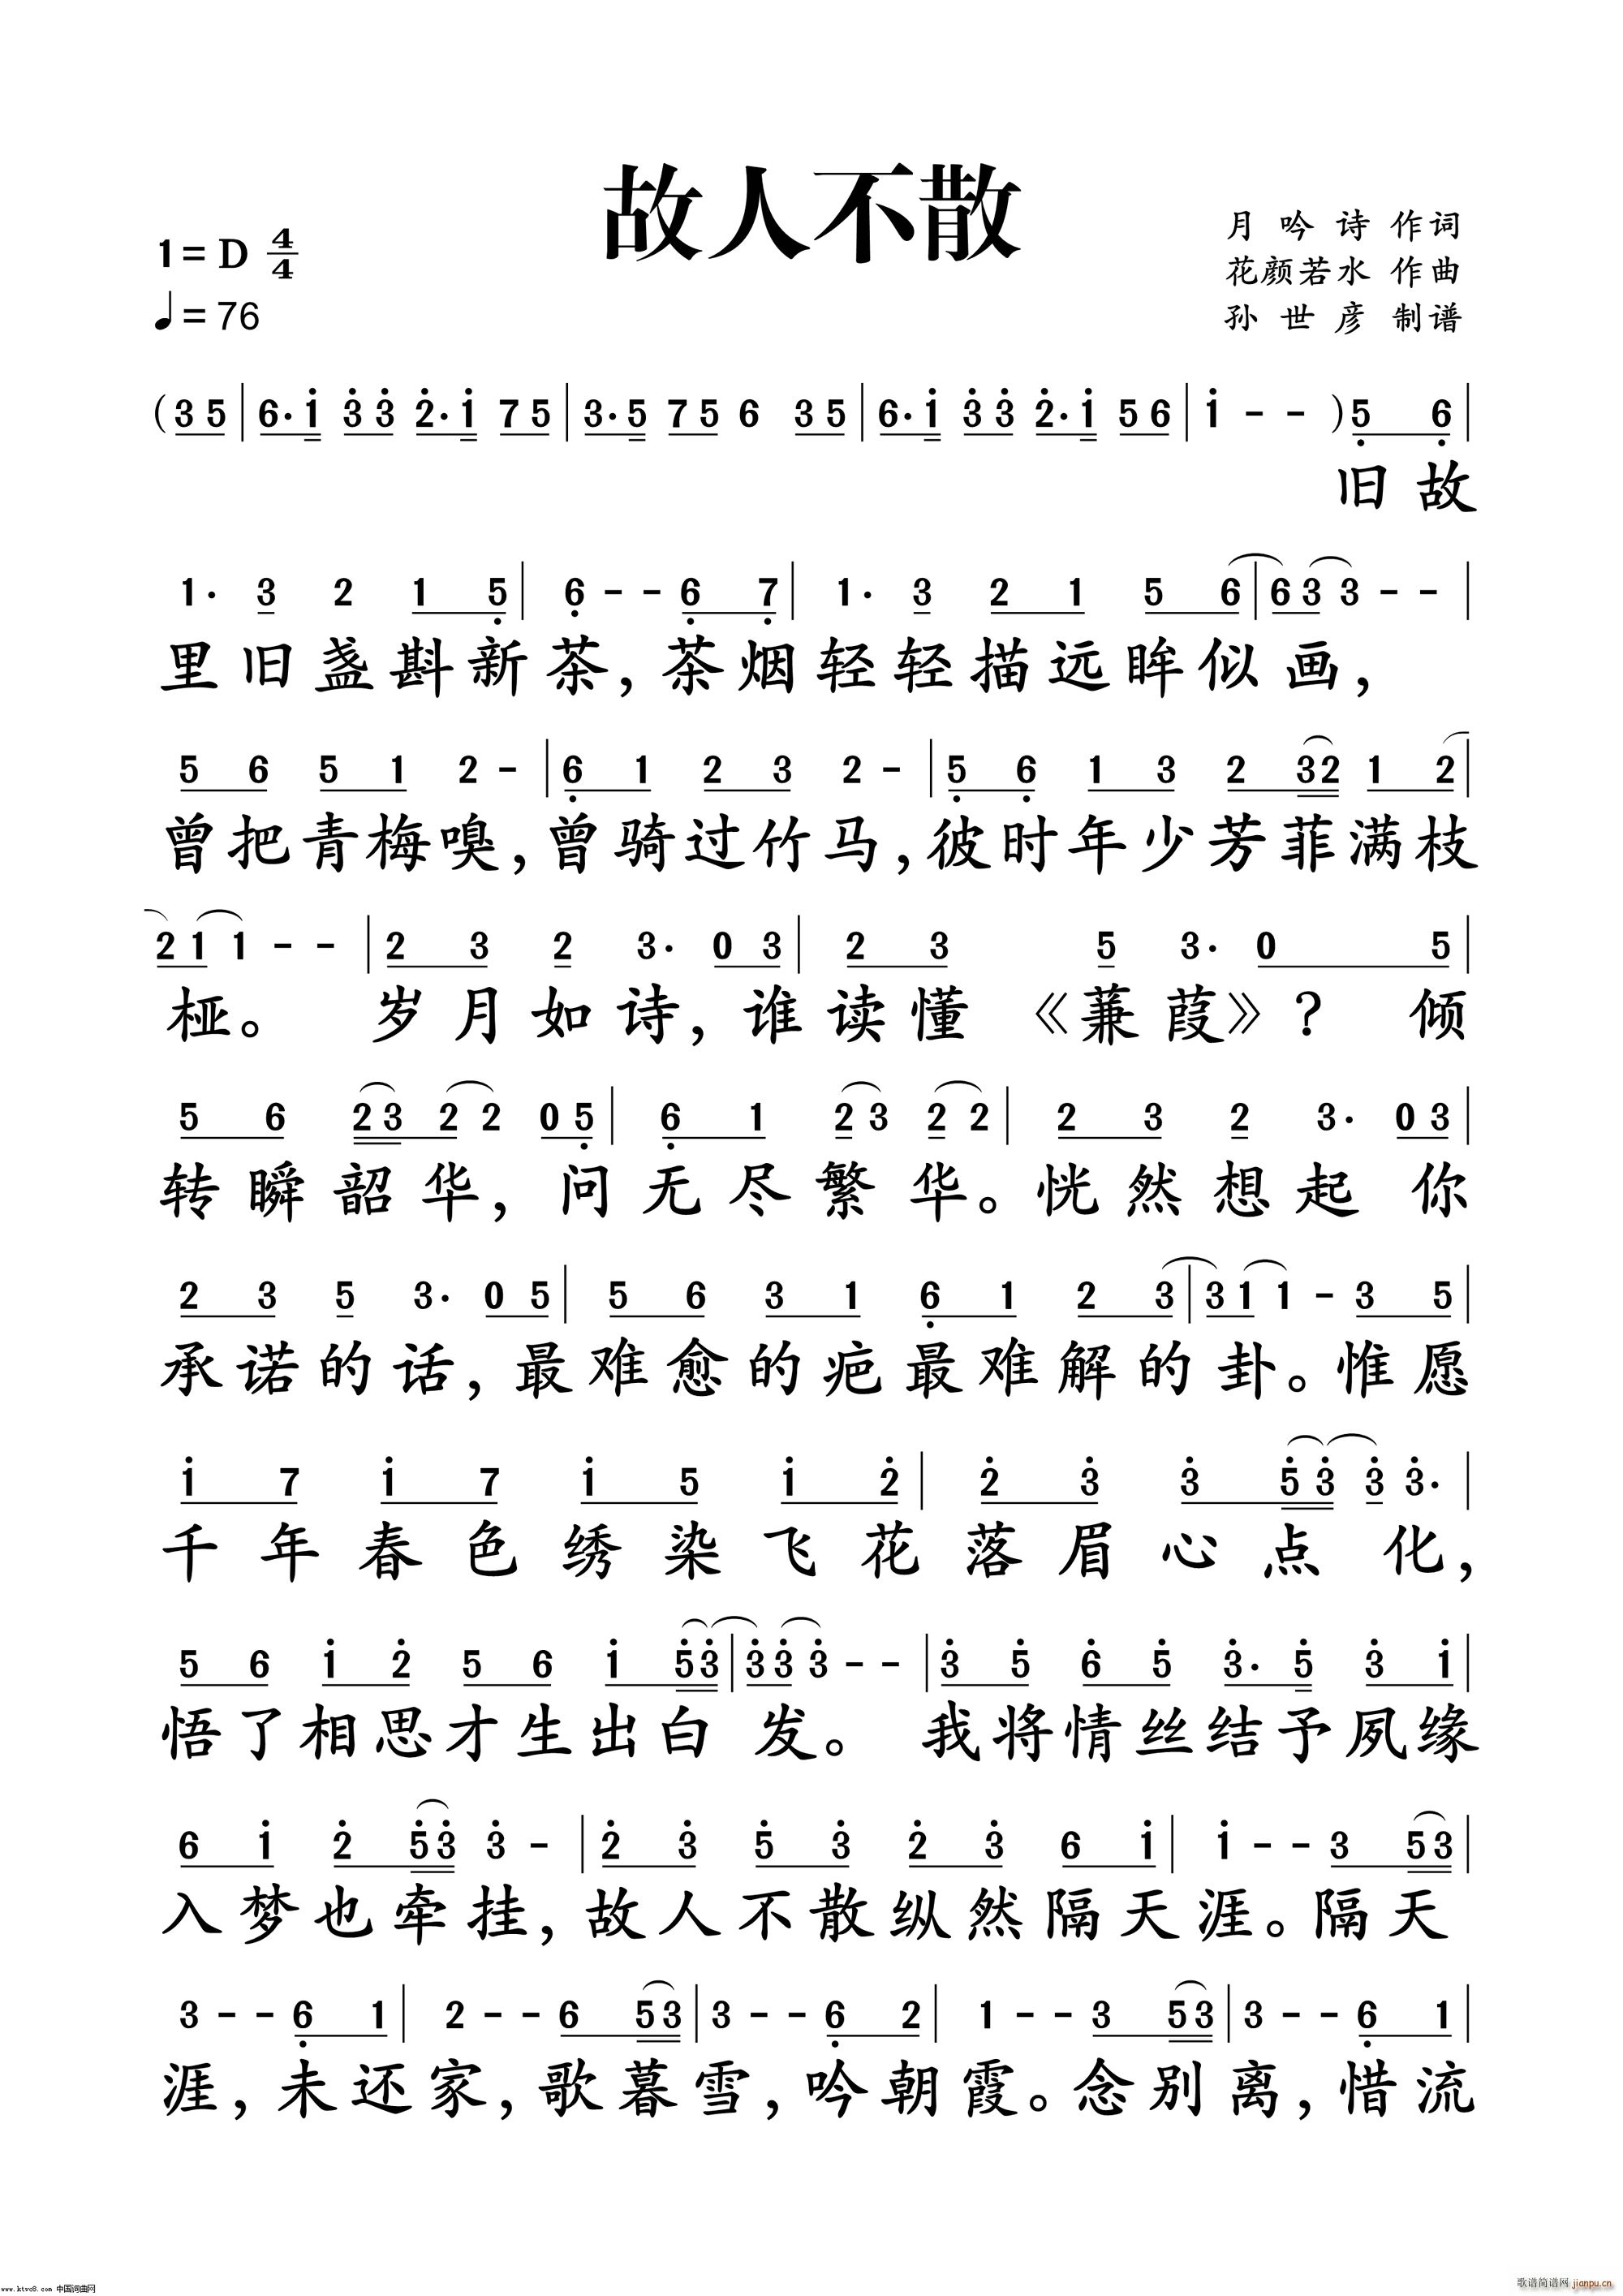 故人不散
1=D 4/4
♩=76
月吟诗 作词
花颜若水 作曲
孙世彦 制谱
(3 5 | 6· i 3 3 2· i 7 5 | 3· 5 7 5 6 3 5 | 6· i 3 3 2· i 5 6 | i - - ) 5 6 |
旧故
1· 3 2 1 5 | 6 - - 6 7 | 1· 3 2 1 5 6 | 6 3 3 - - |
里旧盏斟新茶,茶烟轻轻描远眸似画,
5 6 5 1 2 - | 6 1 2 3 2 - | 5 6 1 3 2 3 2 1 2 |
曾把青梅嗅,曾骑过竹马,彼时年少芳菲满枝
2 1 1 - - | 2 3 2 3· 0 3 | 2 3 5 3· 0 5 |
桠。 岁月如诗,谁读懂《蒹葭》? 倾
5 6 2 3 2 2 0 5 | 6 1 2 3 2 2 | 2 3 2 3· 0 3 |
转瞬韶华,问无尽繁华。恍然想起你
2 3 5 3· 0 5 | 5 6 3 1 6 1 2 3 | 3 1 1 - 3 5 |
承诺的话,最难愈的疤最难解的卦。惟愿
i 7 i 7 i 5 i 2 | 2 3 3 5 3 3 3· |
千年春色绣染飞花落眉心点化,
5 6 i 2 5 6 i 5 3 | 3 3 3 - - | 3 5 6 5 3· 5 3 i |
悟了相思才生出白发。 我将情丝结予夙缘
6 i 2 5 3 3 - | 2 3 5 3 2 3 6 i | i - - 3 5 3 |
入梦也牵挂,故人不散纵然隔天涯。隔天
3 - - 6 1 | 2 - - 6 5 3 | 3 - - 6 2 | 1 - - 3 5 3 | 3 - - 6 1 |
涯,未还家,歌暮雪,吟朝霞。念别离,惜流
www.ktvc8.com 中国词曲网
歌谱简谱网 jianpu.cn